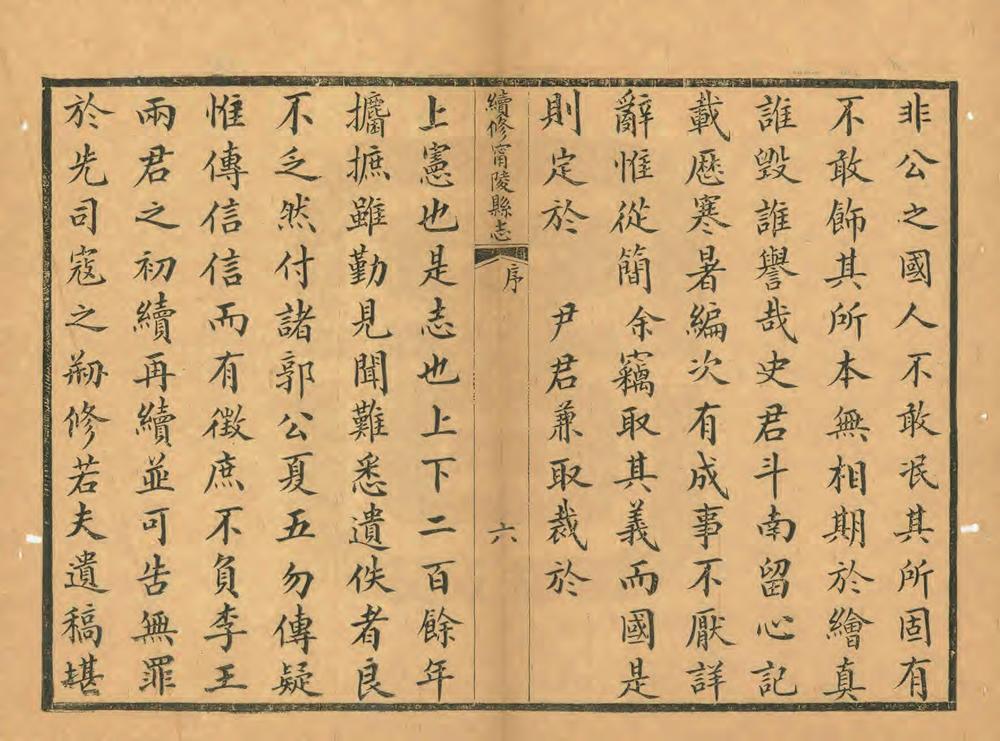 非公之國人不敢泯其所固有
不敢飾其所本無相期於繪真
誰毀誰譽哉史君斗南留心記
載歷寒暑編次有成事不厭詳
辭惟從簡余竊取其義而國是
則定於　尹君兼取裁於
續修甯陵縣志
序
六
上憲也是志也上下二百餘年
攟摭雖勤見聞難悉遺佚者良
不乏然付諸郭公夏五勿傳疑
惟傳信信而有徵庶不負李王
兩君之初續再續並可告無罪
於先司寇之剏修若夫遺稿堪